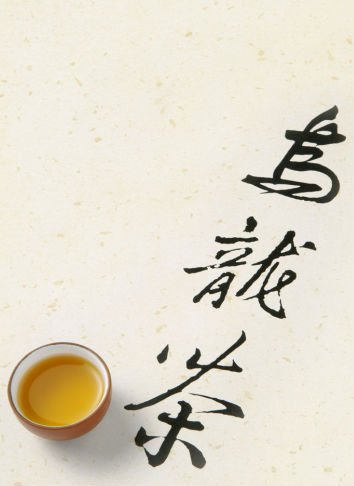 烏龍茶